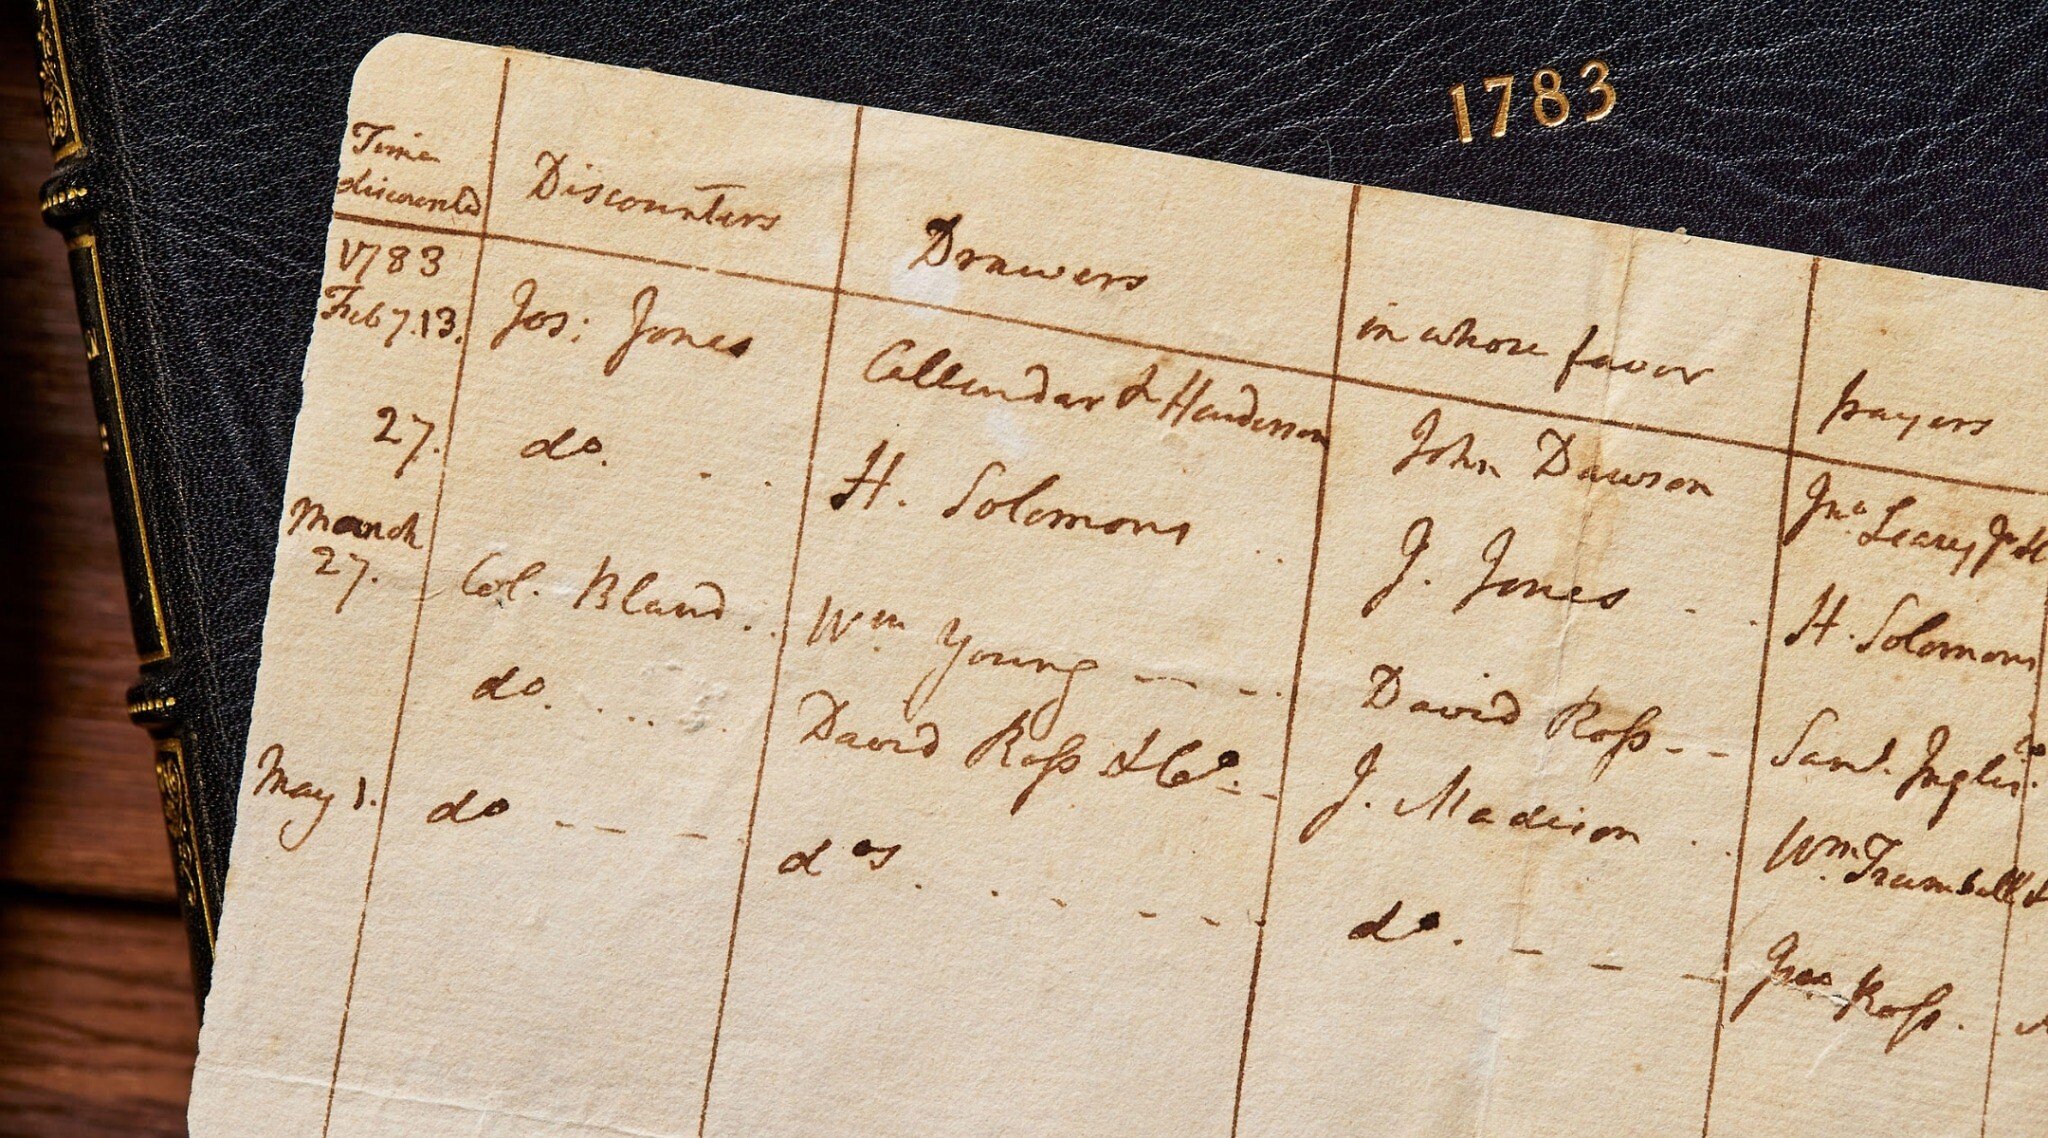 1783
Time
discounted
Discounters
Drawers
in whose favor
payers
1783
Feb 7.13. Jos: Jones Callendar & Henderson John Dawson Jno. Leary Jr
27. do. H. Solomons J. Jones H. Solomons
March
27. Col. Bland Wm. Young David Ross Saml. Inglis Co
do. David Ross & Co. J. Madison Wm. Trumbull &
May 1. do dos. do. Ross.